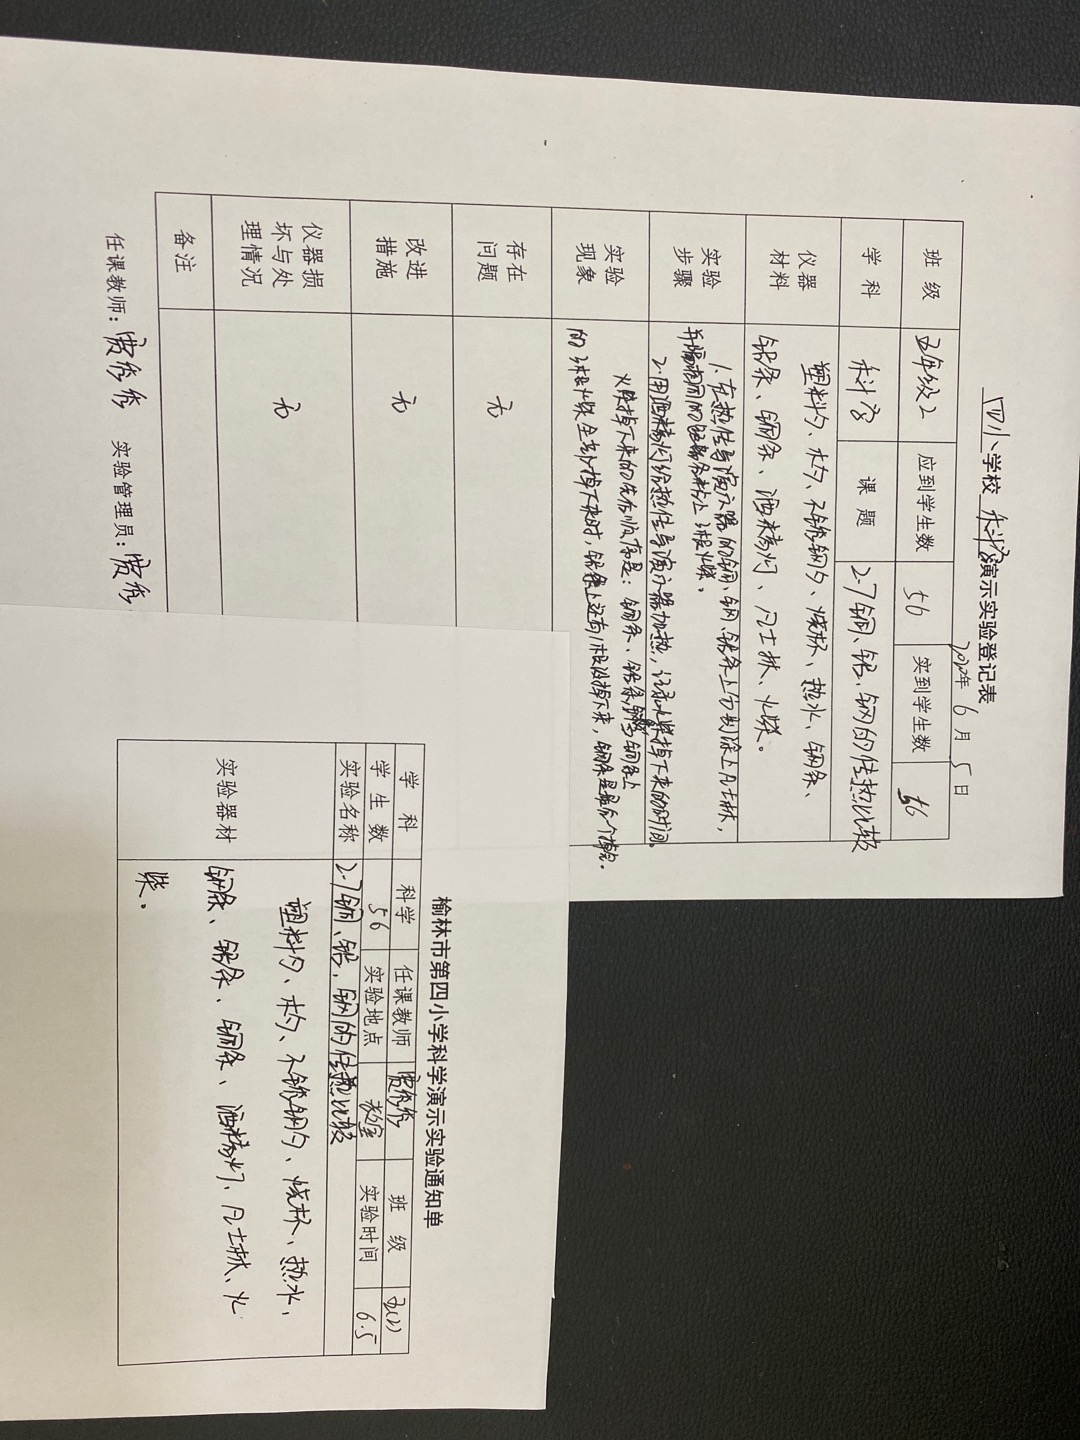 四小学校 科学演示实验登记表
6月5日
班级 五年级2 应到学生数 56 实到学生数 56
学科 科学 课题 2-7铜、铝、钢的传热比较
仪器材料 塑料勺、木勺、不锈钢勺、烧杯、热水、钢条、
铝条、铜条、酒精灯、凡士林、火柴。
实验步骤 1.在热传导演示器的铜、钢、铝条上分别涂上凡士林,
并隔相同的距离分别粘上3根火柴。
2.用酒精灯给热传导演示器加热,记录火柴掉下来的时间。
实验现象 火柴掉下来的先后顺序是:铜条、铝条、钢条
的3根火柴全部掉下来时,铝条上还有1根没掉下来,
存在问题 无
改进措施 无
仪器损坏与处理情况 无
备注
任课教师: 贾修修 实验管理员: 贾修
榆林市第四小学科学演示实验通知单
学科 科学 任课教师 贾修修 班级 五(2)
学生数 56 实验地点 教室 实验时间 6.5
实验名称 2-7铜、铝、钢的传热比较
实验器材 塑料勺、木勺、不锈钢勺、烧杯、热水、
钢条、铝条、铜条、酒精灯、凡士林、火
柴。